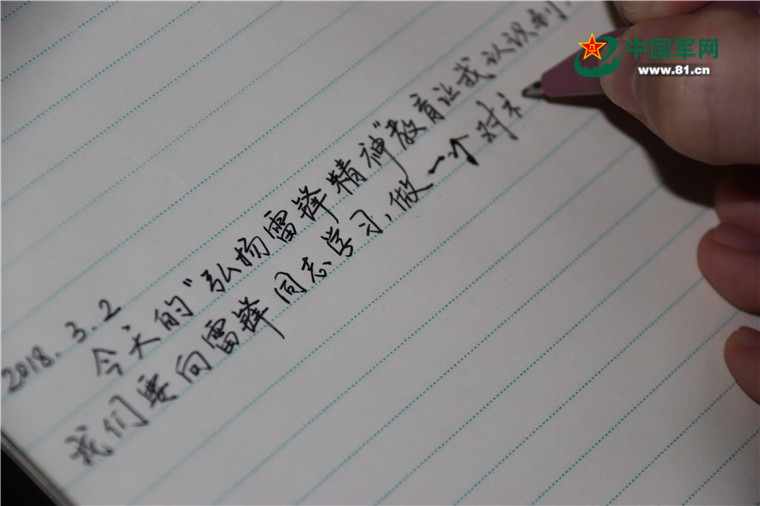 中国军网
www.81.cn
2018.3.2
今天的"弘扬雷锋精神"教育让我认识到
我们要向雷锋同志学习,做一个对